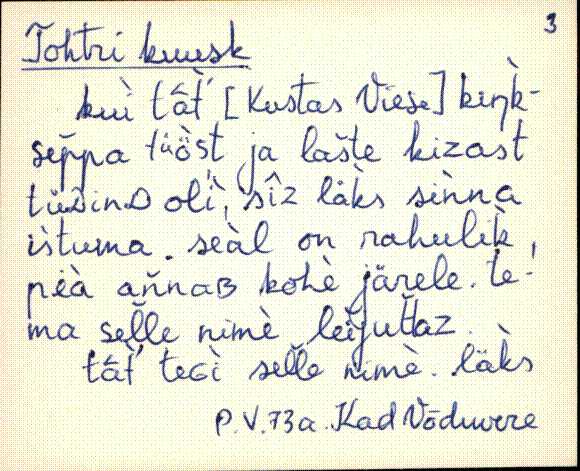 3
Tohtri kuusk
kuì tât̀́ [Kustas Viese] kiŋ̀k-
sep̆pa tüö̀st ja lašte kizast
tüᴅinᴅ olì, sîz läks sìnna
ìstuma. seàl on rahulìk,
pèä ăñnaʙ kohè järele. te-
ma sel̆le nimè leĭjut̆taz.
tât̀́ teɢì sel̆le nimè. läks
P.V.73a. Kad Võduvere